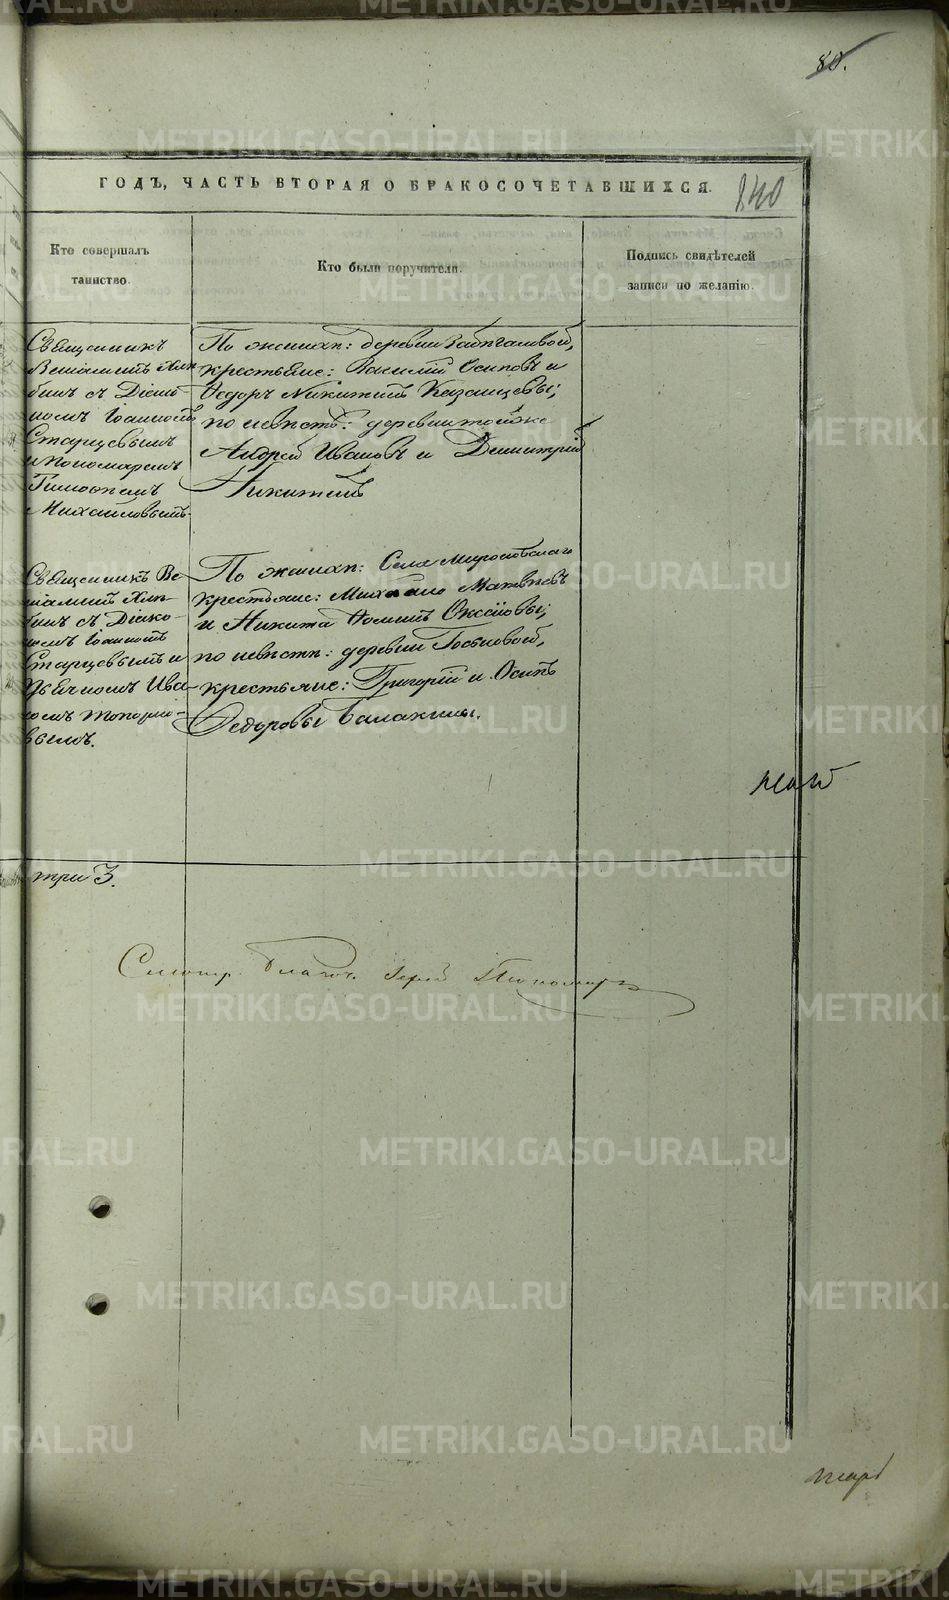 80.
ГОДЪ, ЧАСТЬ ВТОРАЯ О БРАКОСОЧЕТАВШИХСЯ.
140
Кто совершалъ
таинство.
Кто были поручители.
Подпись свидѣтелей
записи по желанію.
Священникъ
Веніаминъ Хлѣ-
бинъ съ Діако-
номъ Іоанномъ
Старцевымъ
и пономаремъ
Тимоѳеемъ
Михайловымъ.
По женихѣ: деревни
крестьяне: Василій Осиповъ и
Ѳедоръ Никитинъ Казанцевы;
по невѣстѣ: деревни тойже
Андрей Ивановъ и Димитрій
Никитинъ
Священникъ Ве-
ніаминъ Хлѣ-
бинъ съ Діако-
номъ Іоанномъ
Старцевымъ и
Дьячкомъ Ива-
номъ Топорко-
вымъ.
По женихѣ: Села Мироновскаго
крестьяне: Михайло Матвѣевъ
и Никита Ѳоминъ
по невѣстѣ: деревни
крестьяне: Григорій и Осипъ
Ѳедоровы Балакины.
май
три 3.
Смотр. Благоч. Іерей Пономаревъ
METRIKI.GASO-URAL.RU